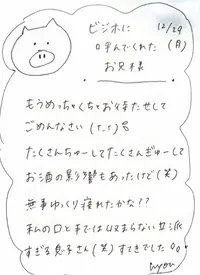 ビジホに
呼んでくれた
お兄様
12/29
(月)
もうめっちゃくちゃお待たせして
ごめんなさい(T_T)
たくさんちゅーしてたくさんぎゅーして
お酒の影響もあったけど(笑)
無事ゆっくり寝れたかな!?
私の口とまでは収まらない立派
すぎる息子さん(笑)すてきでした